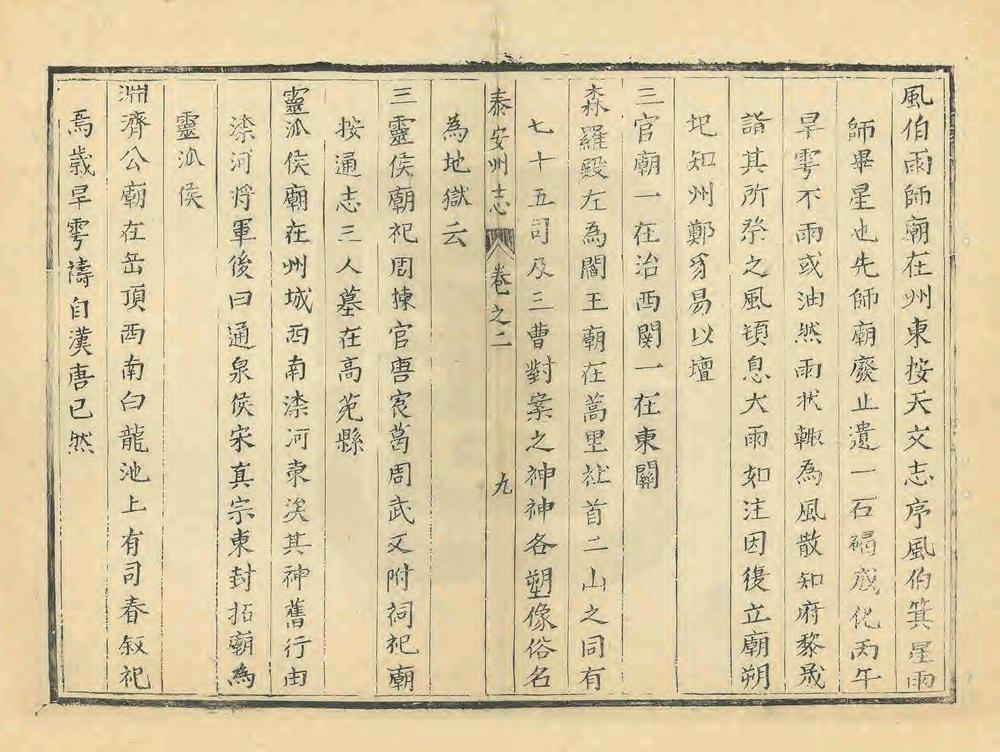 風伯雨師廟在州東按天文志序風伯箕星雨
師畢星也先師廟廢止遺一石碣成化丙午
旱雩不雨或油然雨狀輙為風散知府黎晟
詣其所祭之風頓息大雨如注因復立廟朔
圮知州鄭豸易以壇
三官廟一在治西関一在東關
森羅殿左為閻王廟在蒿里社首二山之同有
七十五司及三曹對案之神神各塑像俗名
泰安州志 卷之二 九
為地獄云
三靈侯廟祀周諫官唐宸葛周武又附祠祀廟
按通志三人墓在高苑縣
靈泒侯廟在州城西南渿河東涘其神舊行由
渿河将軍後曰通泉侯宋真宗東封拓廟為
靈泒侯
淵齊公廟在岳頂西南白龍池上有司春叙祀
焉歲旱雩禱自漢唐已然